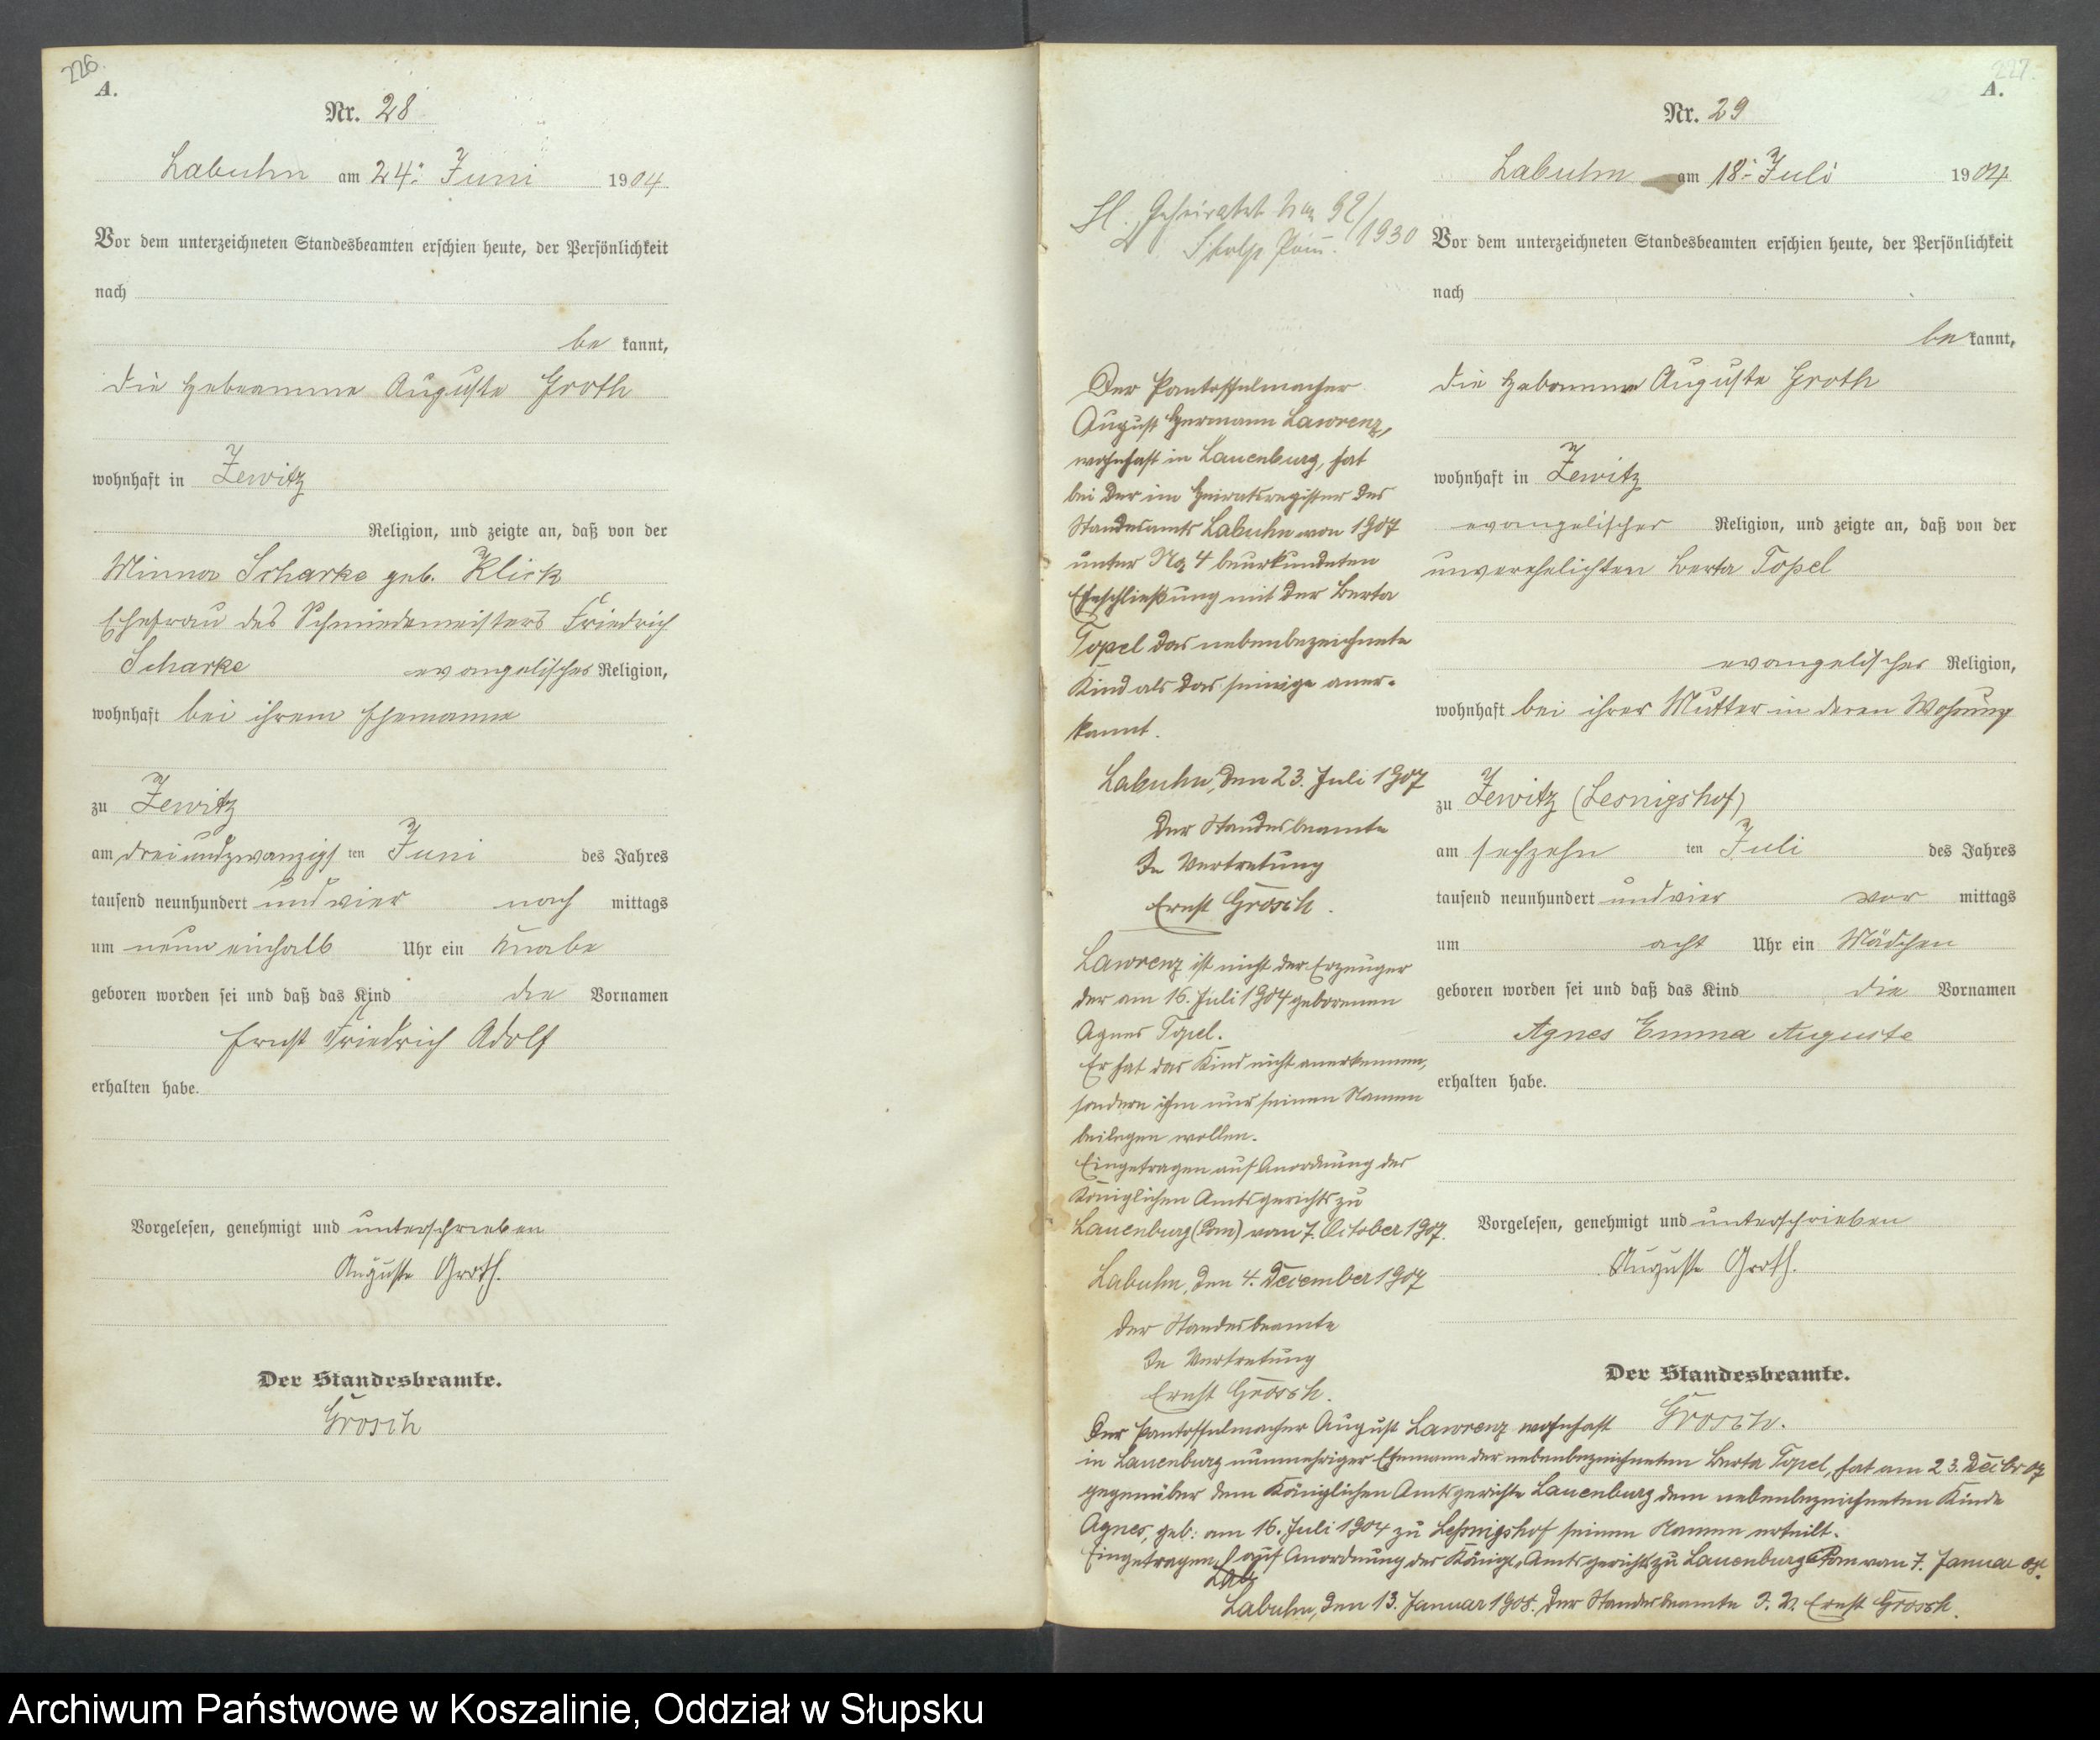 226.
A.
Nr. 28
Labuhn am 24. Juni 1904
Vor dem unterzeichneten Standesbeamten erschien heute, der Persönlichkeit
nach
be kannt,
die Hebeamme Auguste Groth
wohnhaft in Zewitz
Religion, und zeigte an, daß von der
Minna Scharke geb. Klick
Ehefrau des Schmiedemeisters Friedrich
Scharke evangelischer Religion,
wohnhaft bei ihrem Ehemanne
zu Zewitz
am dreiundzwanzigs ten Juni des Jahres
tausend neunhundert und vier nach mittags
um neun einhalb Uhr ein Knabe
geboren worden sei und daß das Kind die Vornamen
Ernst Friedrich Adolf
erhalten habe.
Vorgelesen, genehmigt und unterschrieben
Auguste Groth.
Der Standesbeamte.
Grosch
227.
A.
Nr. 29
Labuhn am 18. Juli 1904
Vor dem unterzeichneten Standesbeamten erschien heute, der Persönlichkeit
nach
be kannt,
die Hebamme Auguste Groth
wohnhaft in Zewitz
evangelischer Religion, und zeigte an, daß von der
unverehelichten Berta Topel
evangelischer Religion,
wohnhaft bei ihrer Mutter in deren Wohnung
zu Zewitz (Lesnigshof)
am sechzehn ten Juli des Jahres
tausend neunhundert und vier vor mittags
um acht Uhr ein Mädchen
geboren worden sei und daß das Kind die Vornamen
Agnes Emma Auguste
erhalten habe.
Vorgelesen, genehmigt und unterschrieben
Auguste Groth.
Der Standesbeamte.
Grosch.
Geheiratet 1930
Stolp Pom.
Der Pantoffelmacher
August Hermann Lawrenz,
wohnhaft in Lauenburg, hat
bei der im Heiratsregister des
Standesamts Labuhn von 1907
unter No 4 beurkundeten
Eheschließung mit der Berta
Topel das nebenbezeichnete
Kind als das seinige aner-
kannt.
Labuhn, den 23. Juli 1907
Der Standesbeamte
In Vertretung
Ernst Grosch.
Lawrenz ist nicht der Erzeuger
der am 16. Juli 1904 geborenen
Agnes Topel.
Er hat das Kind nicht anerkennen,
sondern ihm nur seinen Namen
beilegen wollen.
Eingetragen auf Anordnung des
Königlichen Amtsgerichts zu
Lauenburg (Pom) vom 7. October 1907.
Labuhn, den 4. December 1907
Der Standesbeamte
In Vertretung
Ernst Grosch.
Der Pantoffelmacher August Lawrenz wohnhaft
in Lauenburg nunmehriger Ehemann der nebenbezeichneten Berta Topel, hat am 23. Decbr 07
gegenüber dem Königlichen Amtsgerichte Lauenburg dem nebenbezeichneten Kinde
Agnes, geb: am 16. Juli 1904 zu Leßnigshof seinen Namen erteilt.
Eingetragen auf Anordnung des Königl. Amtsgerichts zu Lauenburg Pom vom 7. Januar 08.
Labuhn, den 13. Januar 1908. Der Standesbeamte I. V. Ernst Grosch.
Archiwum Państwowe w Koszalinie, Oddział w Słupsku